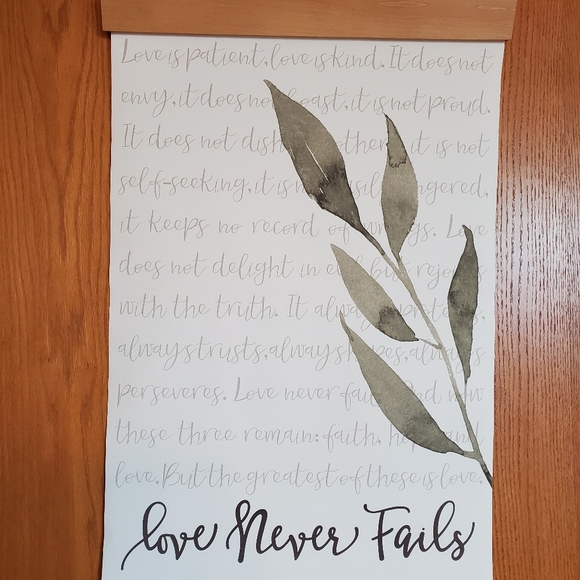 Love is patient, love is kind. It does not
envy, it does not boast, it is not proud.
It does not dishonor others, it is not
self-seeking, it is not easily angered,
it keeps no record of wrongs. Love
does not delight in evil but rejoices
with the truth. It always protects,
always trusts, always hopes, always
perseveres. Love never fails. And now
these three remain: faith, hope and
love. But the greatest of these is love.
love Never Fails